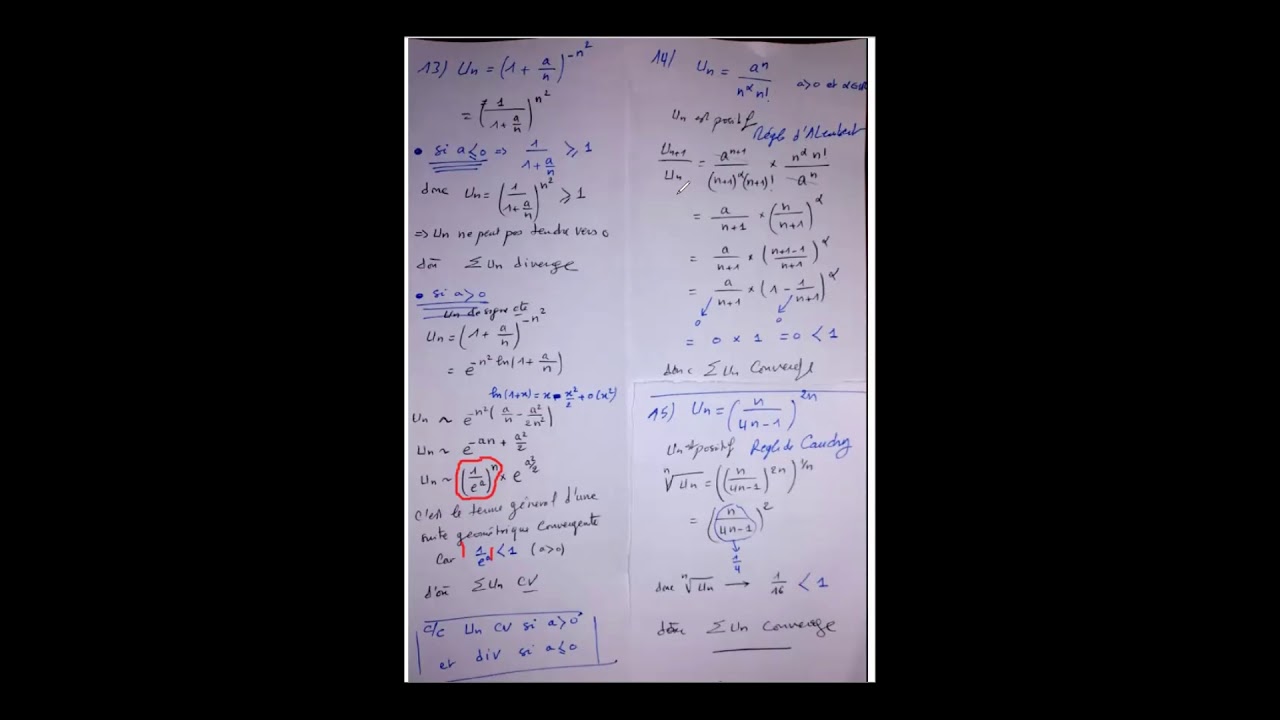 13) Un = (1 + a/n)^-n²
= (1/(1+a/n))^n²
• si a ≤ 0 => 1/(1+a/n) ≥ 1
donc Un = (1/(1+a/n))^n² ≥ 1
=> Un ne peut pas tendre vers 0
d'où Σ Un diverge
• si a > 0
Un de signe cte
Un = (1 + a/n)^-n²
= e^-n² ln(1 + a/n)
ln(1+x) = x - x²/2 + o(x²)
Un ~ e^-n²(a/n - a²/2n²)
Un ~ e^-an + a²/2
Un ~ (1/e^a)^n × e^a²/2
c'est le terme général d'une
suite géométrique convergente
Car |1/e^a| < 1 (a>0)
d'où Σ Un CV
c/c Un CV si a>0
et div si a≤0
14/ Un = a^n/(n^α n!) a>0 et α∈ℝ
Un est positif
Régle d'Alembert
Un+1/Un = a^n+1/((n+1)^α (n+1)!) × n^α n!/a^n
= a/(n+1) × (n/(n+1))^α
= a/(n+1) × ((n+1-1)/(n+1))^α
= a/(n+1) × (1 - 1/(n+1))^α
0 0
= 0 × 1 = 0 < 1
donc Σ Un Converge
15) Un = (n/(4n-1))^2n
Un est positif Regle de Cauchy
ⁿ√Un = ((n/(4n-1))^2n)^1/n
= (n/(4n-1))^2
1/4
donc ⁿ√Un → 1/16 < 1
donc Σ Un Converge